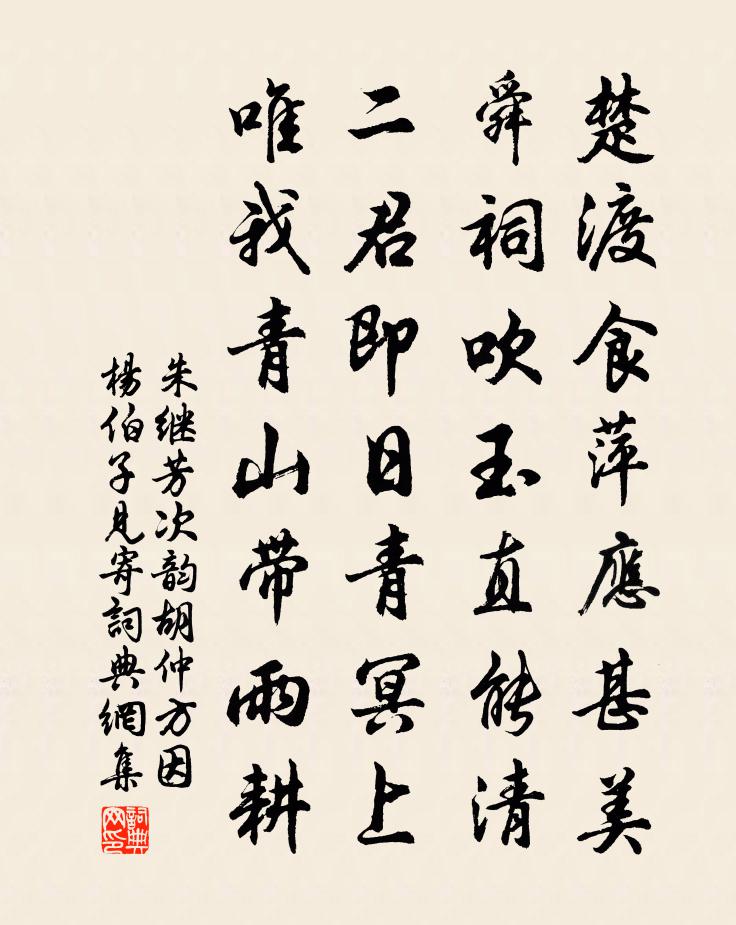 楚渡食萍應甚美
舜祠吹玉直能清
二君即日青冥上
唯我青山帶雨耕
朱继芳次韵胡仲方因
楊伯子見寄詞典網集
詞典
网印